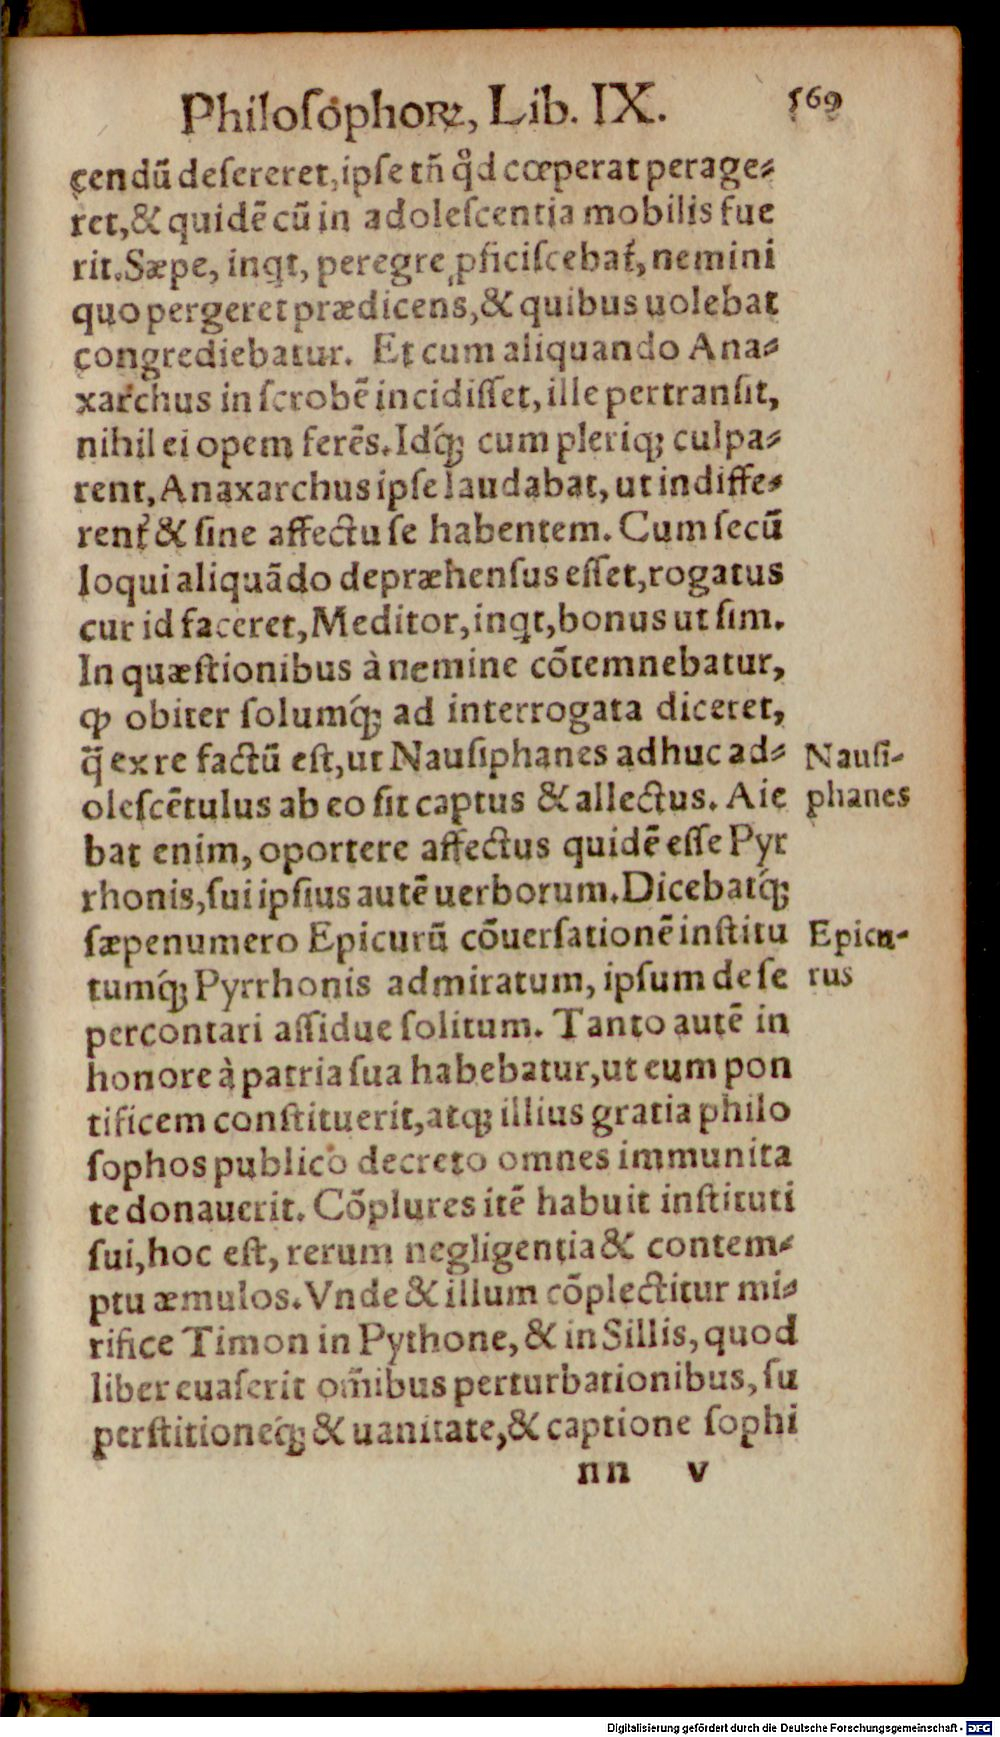 Philoſophorꝝ, Lib. IX. 569
cendū deſereret, ipſe tn̄ qd̊ cœperat perage⸗
ret, & quidē cū in adoleſcentia mobilis fue
rit. Sæpe, inqt, peregre ꝓficiſcebat᷑, nemini
quo pergeret prædicens, & quibus uolebat
congrediebatur. Et cum aliquando Ana⸗
xarchus in ſcrobē incidiſſet, ille pertranſit,
nihil ei opem ferēs. Idq́ꝫ cum pleriqꝫ culpa⸗
rent, Anaxarchus ipſe laudabat, ut indiffe⸗
rent᷑ & ſine affectu ſe habentem. Cum ſecū
loqui aliquādo depræhenſus eſſet, rogatus
cur id faceret, Meditor, inqt, bonus ut ſim.
In quæſtionibus à nemine cōtemnebatur,
ꝙ obiter ſolumq́ꝫ ad interrogata diceret,
q̄ ex re factū eſt, ut Nauſiphanes adhuc ad⸗
oleſcētulus ab eo ſit captus & allectus. Aie
bat enim, oportere affectus quidē eſſe Pyr
rhonis, ſui ipſius autē uerborum. Dicebatq́ꝫ
ſæpenumero Epicurū cōuerſationē inſtitu
tumq́ꝫ Pyrrhonis admiratum, ipſum de ſe
percontari aſſidue ſolitum. Tanto autē in
honore à patria ſua habebatur, ut eum pon
tificem conſtituerit, atqꝫ illius gratia philo
ſophos publico decreto omnes immunita
te donauerit. Cōplures itē habuit inſtituti
ſui, hoc eſt, rerum negligentia & contem⸗
ptu æmulos. Vnde & illum cōplectitur mi⸗
rifice Timon in Pythone, & in Sillis, quod
liber euaſerit om̄ibus perturbationibus, ſu
perſtitioneq́ꝫ & uanitate, & captione ſophi
nn v
Nauſi-
phanes
Epicu-
rus
Digitalisierung gefördert durch die Deutsche Forschungsgemeinschaft - DFG